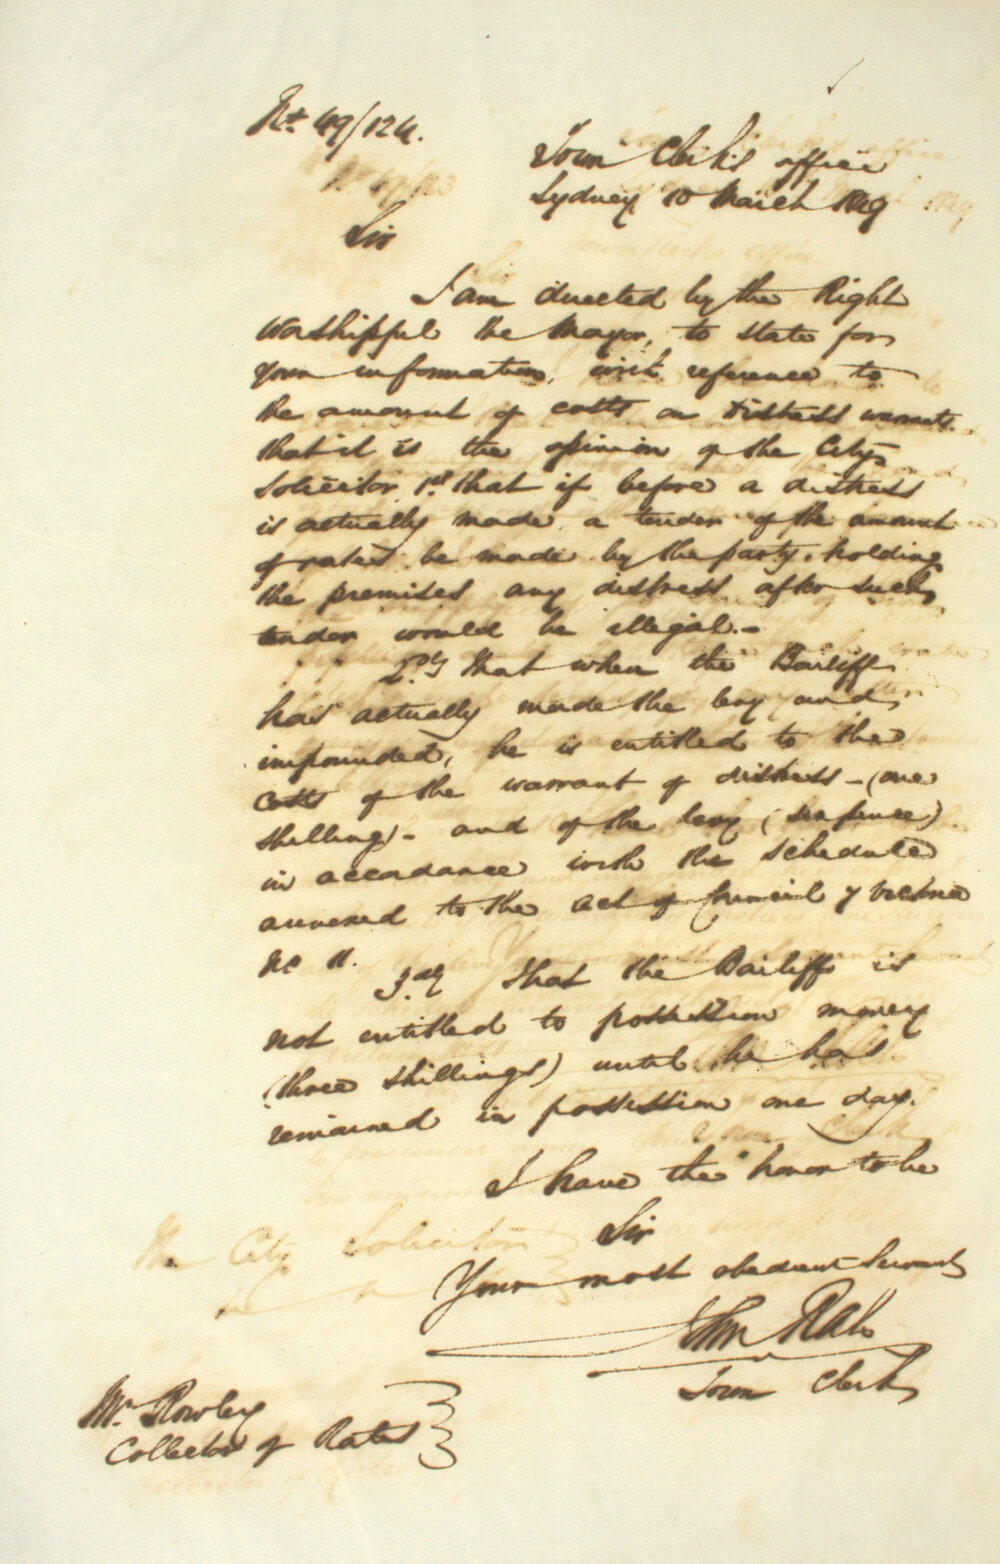 No. 49/124.
Town Clerk's office
Sydney 10 March 1849
Sir
I am directed by the Right
Worshipful the Mayor, to state for
your information, with reference to
the amount of costs on Distress warrants
that it is the opinion of the City
Solicitor 1st that if before a distress
is actually made a tender of the amount
of rates be made by the party holding
the premises any distress after such
tender would be illegal. -
2ndly That when the Bailiff
has actually made the levy and
impounded, he is entitled to the
costs of the warrant of distress - (one
shilling) - and of the levy (sixpence)
in accordance with the schedule
annexed to the Act of Council 7 Victoria
No 11.
3dly That the Bailiff is
not entitled to possession money
(three shillings) until he has
remained in possession one day.
I have the honor to be
Sir
Your most obedient Servant
John Rae
Town Clerk
Mr. Rowley
Collector of Rates